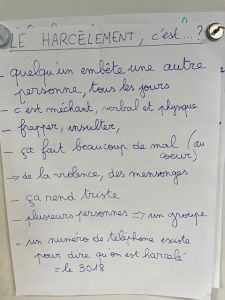 LE HARCÈLEMENT, c'est...?
- quelqu'un embête une autre
personne, tous les jours
- c'est méchant, verbal et physique
- frapper, insulter,
- ça fait beaucoup de mal (au
coeur)
-> de la violence, des mensonges
- ça rend triste
- plusieurs personnes => un groupe
- un numéro de téléphone existe
pour dire qu'on est harcelé
= le 3018